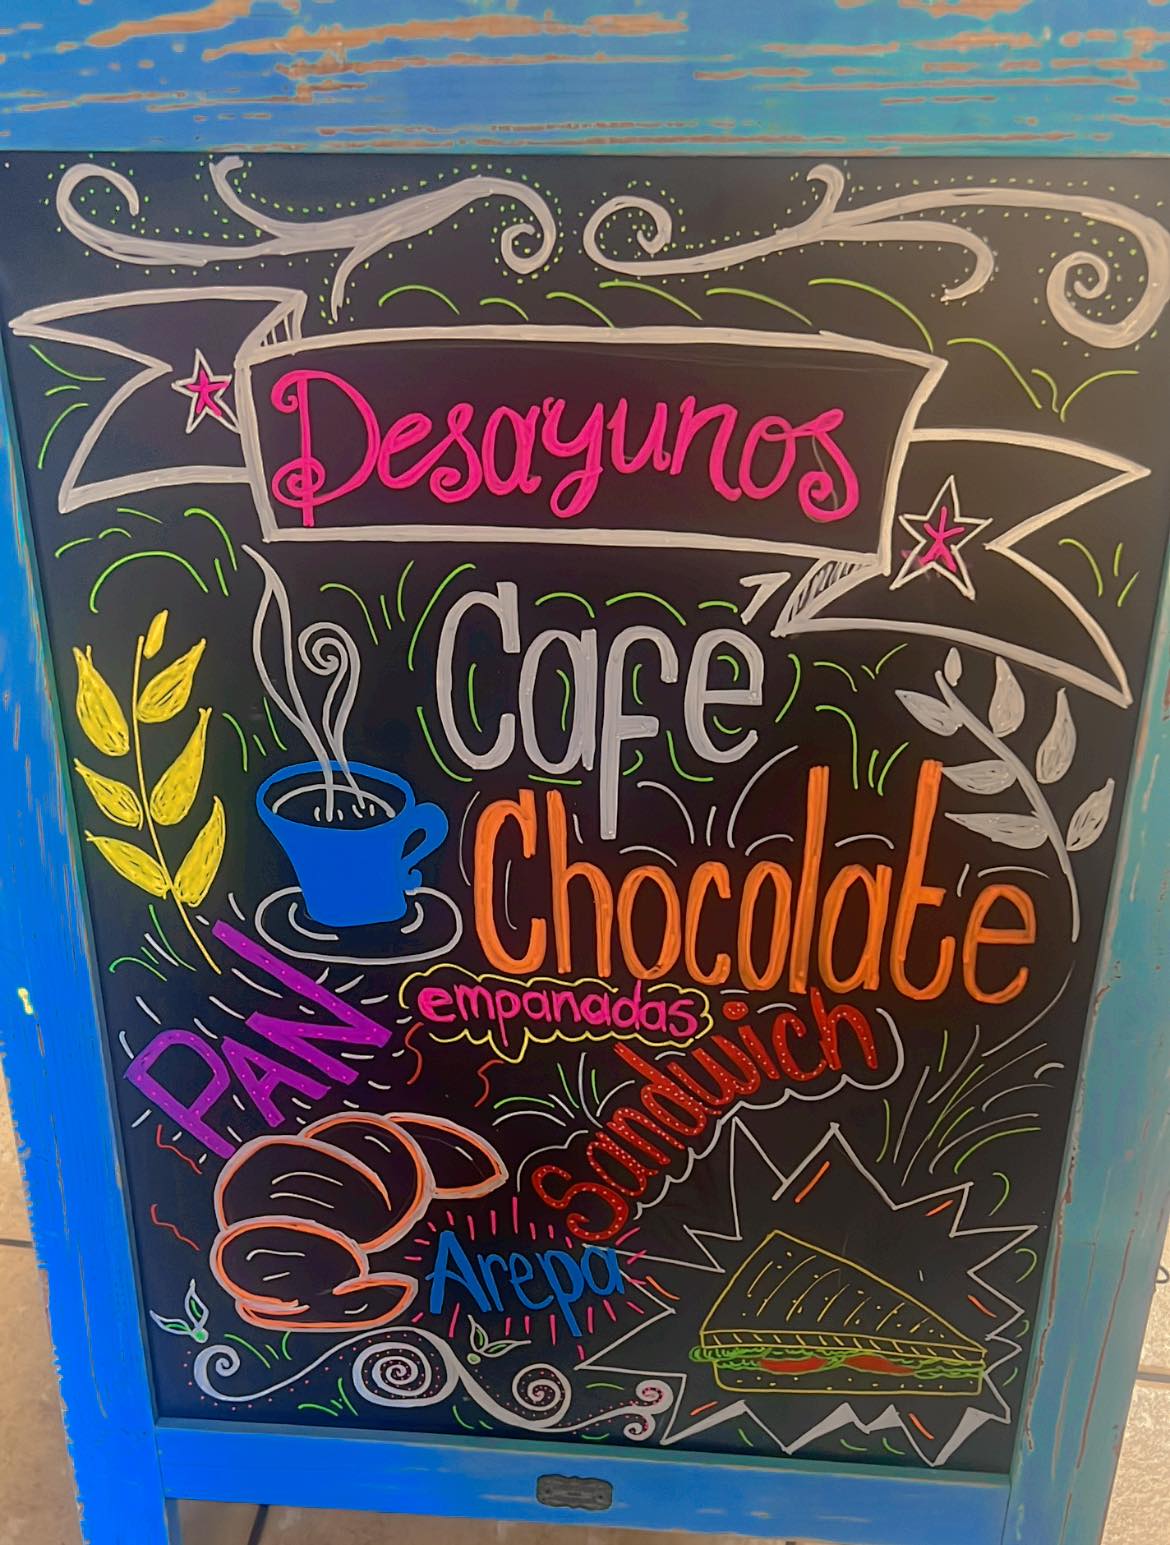 Desayunos
Café
Chocolate
PAN
empanadas
Sandwich
Arepa